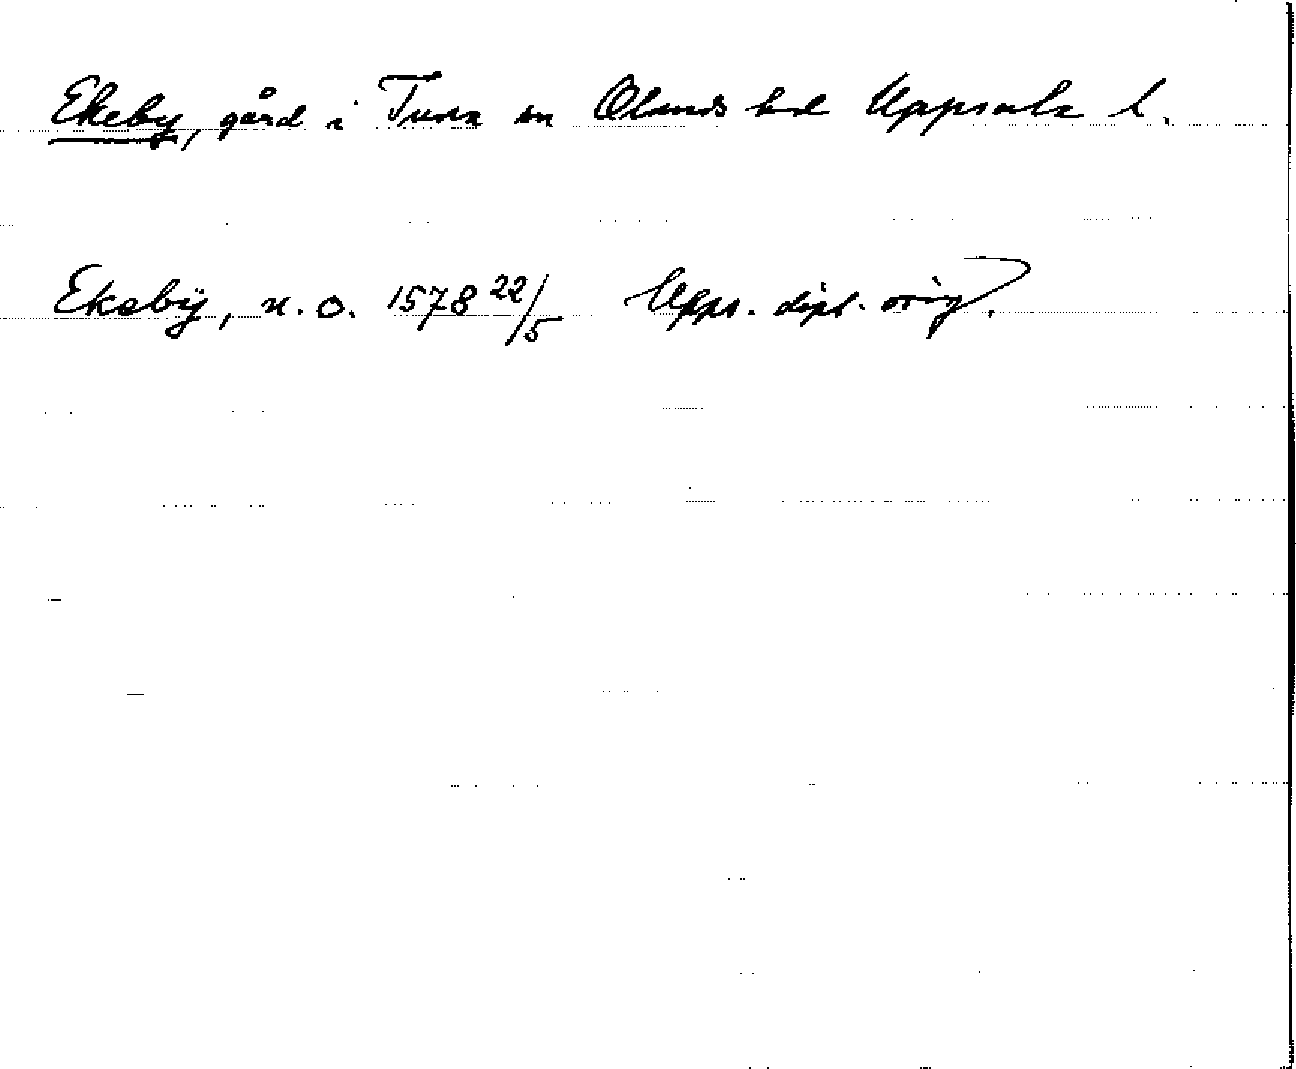 Ekeby, gård i Tuna sn Olands hd Uppsala l.
Ekebÿ, n.o. 1578 22/5 Upps. dipl. orig.